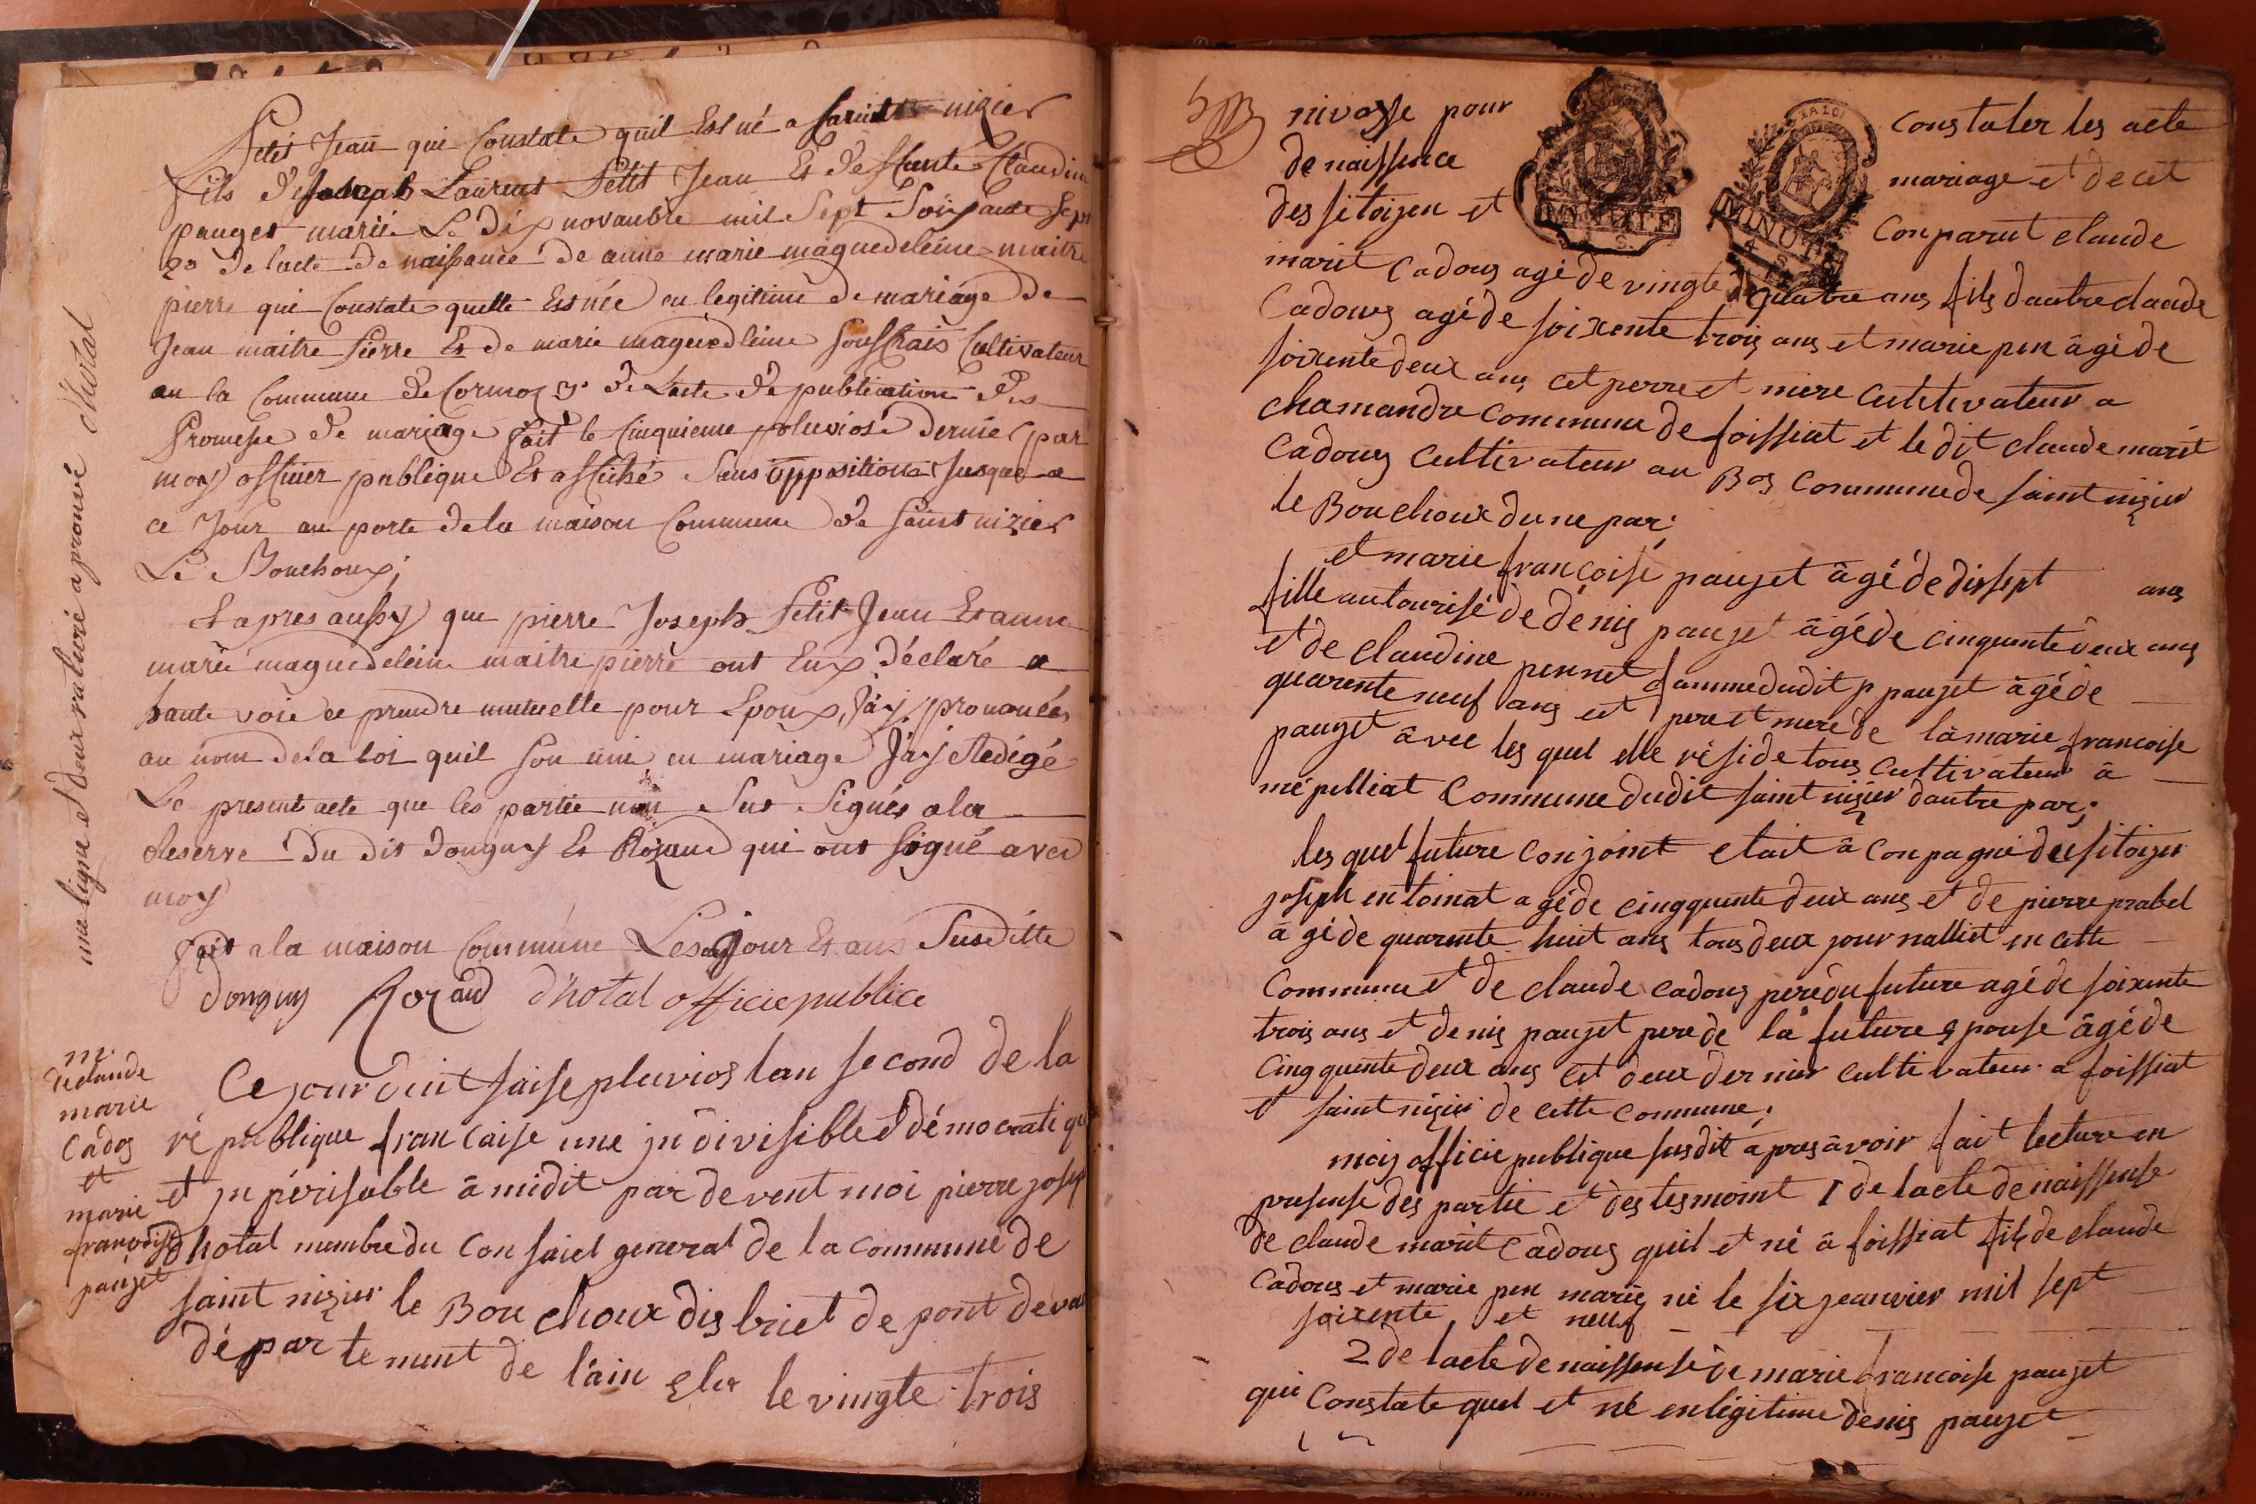 petit Jean qui Constate quil Est né a saint nizier
fils de Laurent Petit Jean Et de Claudine
pauget marié Le dix novanbre mil Sept Soixante Sept
2º de lacte de naissance de anne marie maguedeleine maitre
pierre qui Constate quelle Est née en legitime de mariage de
Jean maitre pierre Et de marie maguedleine Cultivateur
an la Commune de Cormoz 3º de Lacte de publication des
Promesse de mariage fait le Cinquieme pluviose dernier par
moy officier publique Et affiché Sans oppositions Jusque a
ce Jour au porte de la maison Commune de saint nizier
Le Bouchoux;
Et apres aussy que pierre Joseph Petit Jean Et anne
marie maguedeleine maitre pierre ont Eux déclaré a
haute voie ce prendre mutuelle pour Epoux, J'ay prononcés
au nom de la loi quil son uni en mariage J'ay Redigé
Le present acte que les partie non Sut Signés a la
Reserve du dit donguy Et Rozand qui ont signé avec
moy
fait a la maison Commune Les Jour Et ans Susditte
donguy Rozand d'hotal officie publice
une ligne et deux raturé aprouvé d'hotal
m.
de claude
marie
Cados
et
marie
francoise
paujet
Ce jour duit saise pluvios lan second de la
république francaise une jndivisible et démocratique
et jnpérisable â midit par devent moi pierre joseph
Dhotal nembre du Consaiel general de la commune de
saint nizier le Bouchoux distriet de pont devau
département de l'ain Eler le vingte trois
nivosse pour constater les acte
de naissence mariage et de cet
des sitoizen et Conparut claude
marit Cadous agé de vingte quatre ans fils dautre claude
Cadous agé de soixente trois ans et marie pin âgé de
soixente deux ans cet perre et mere cultivateur a
chamandre commune de foissiat et le dit claude marit
Cadous cultivateur au Bos commune de saint nizier
le Bouchoux dune par;
et marie françoise paujet âgé de dissept ans
fille autourisé de dénis paujet âgé de cinquente deux ans
et de claudine pernet famme dudit p paujet âgé de
quarente neuf ans cet pere et mere de la marie francoise
paujet âvec les quel elle réside tous cultivateur â
mépilliat Commune dudit saint nizier dautre par;
les quel future conjoint etait â conpagné des sitoizen
joseph entoinat agé de cinqquente deux ans et de pierre prabel
agé de quarente huit ans tous deux journalliet en cette
Commune et de claude cadous pere du future agé de soixente
trois ans et denis paujet pere de la future epouse âgé de
cinqquente deux ans cet deux dernier cultivateur a foissiat
et saint nizier de cette commune;
moij officie publique susdit apres âvoir fait lecture en
presense des partie et des tesmoint 1 de lacte de naissense
de claude marit Cadous quil et né â foissiat fils de claude
Cadous et marie pin marie né le six jeanvier mil sept
soixente et neuf
2 de lacte de naissense de marie francoise paujet
qui Constate quel et né en légitime denis paujet
MINUTE
MINUTE